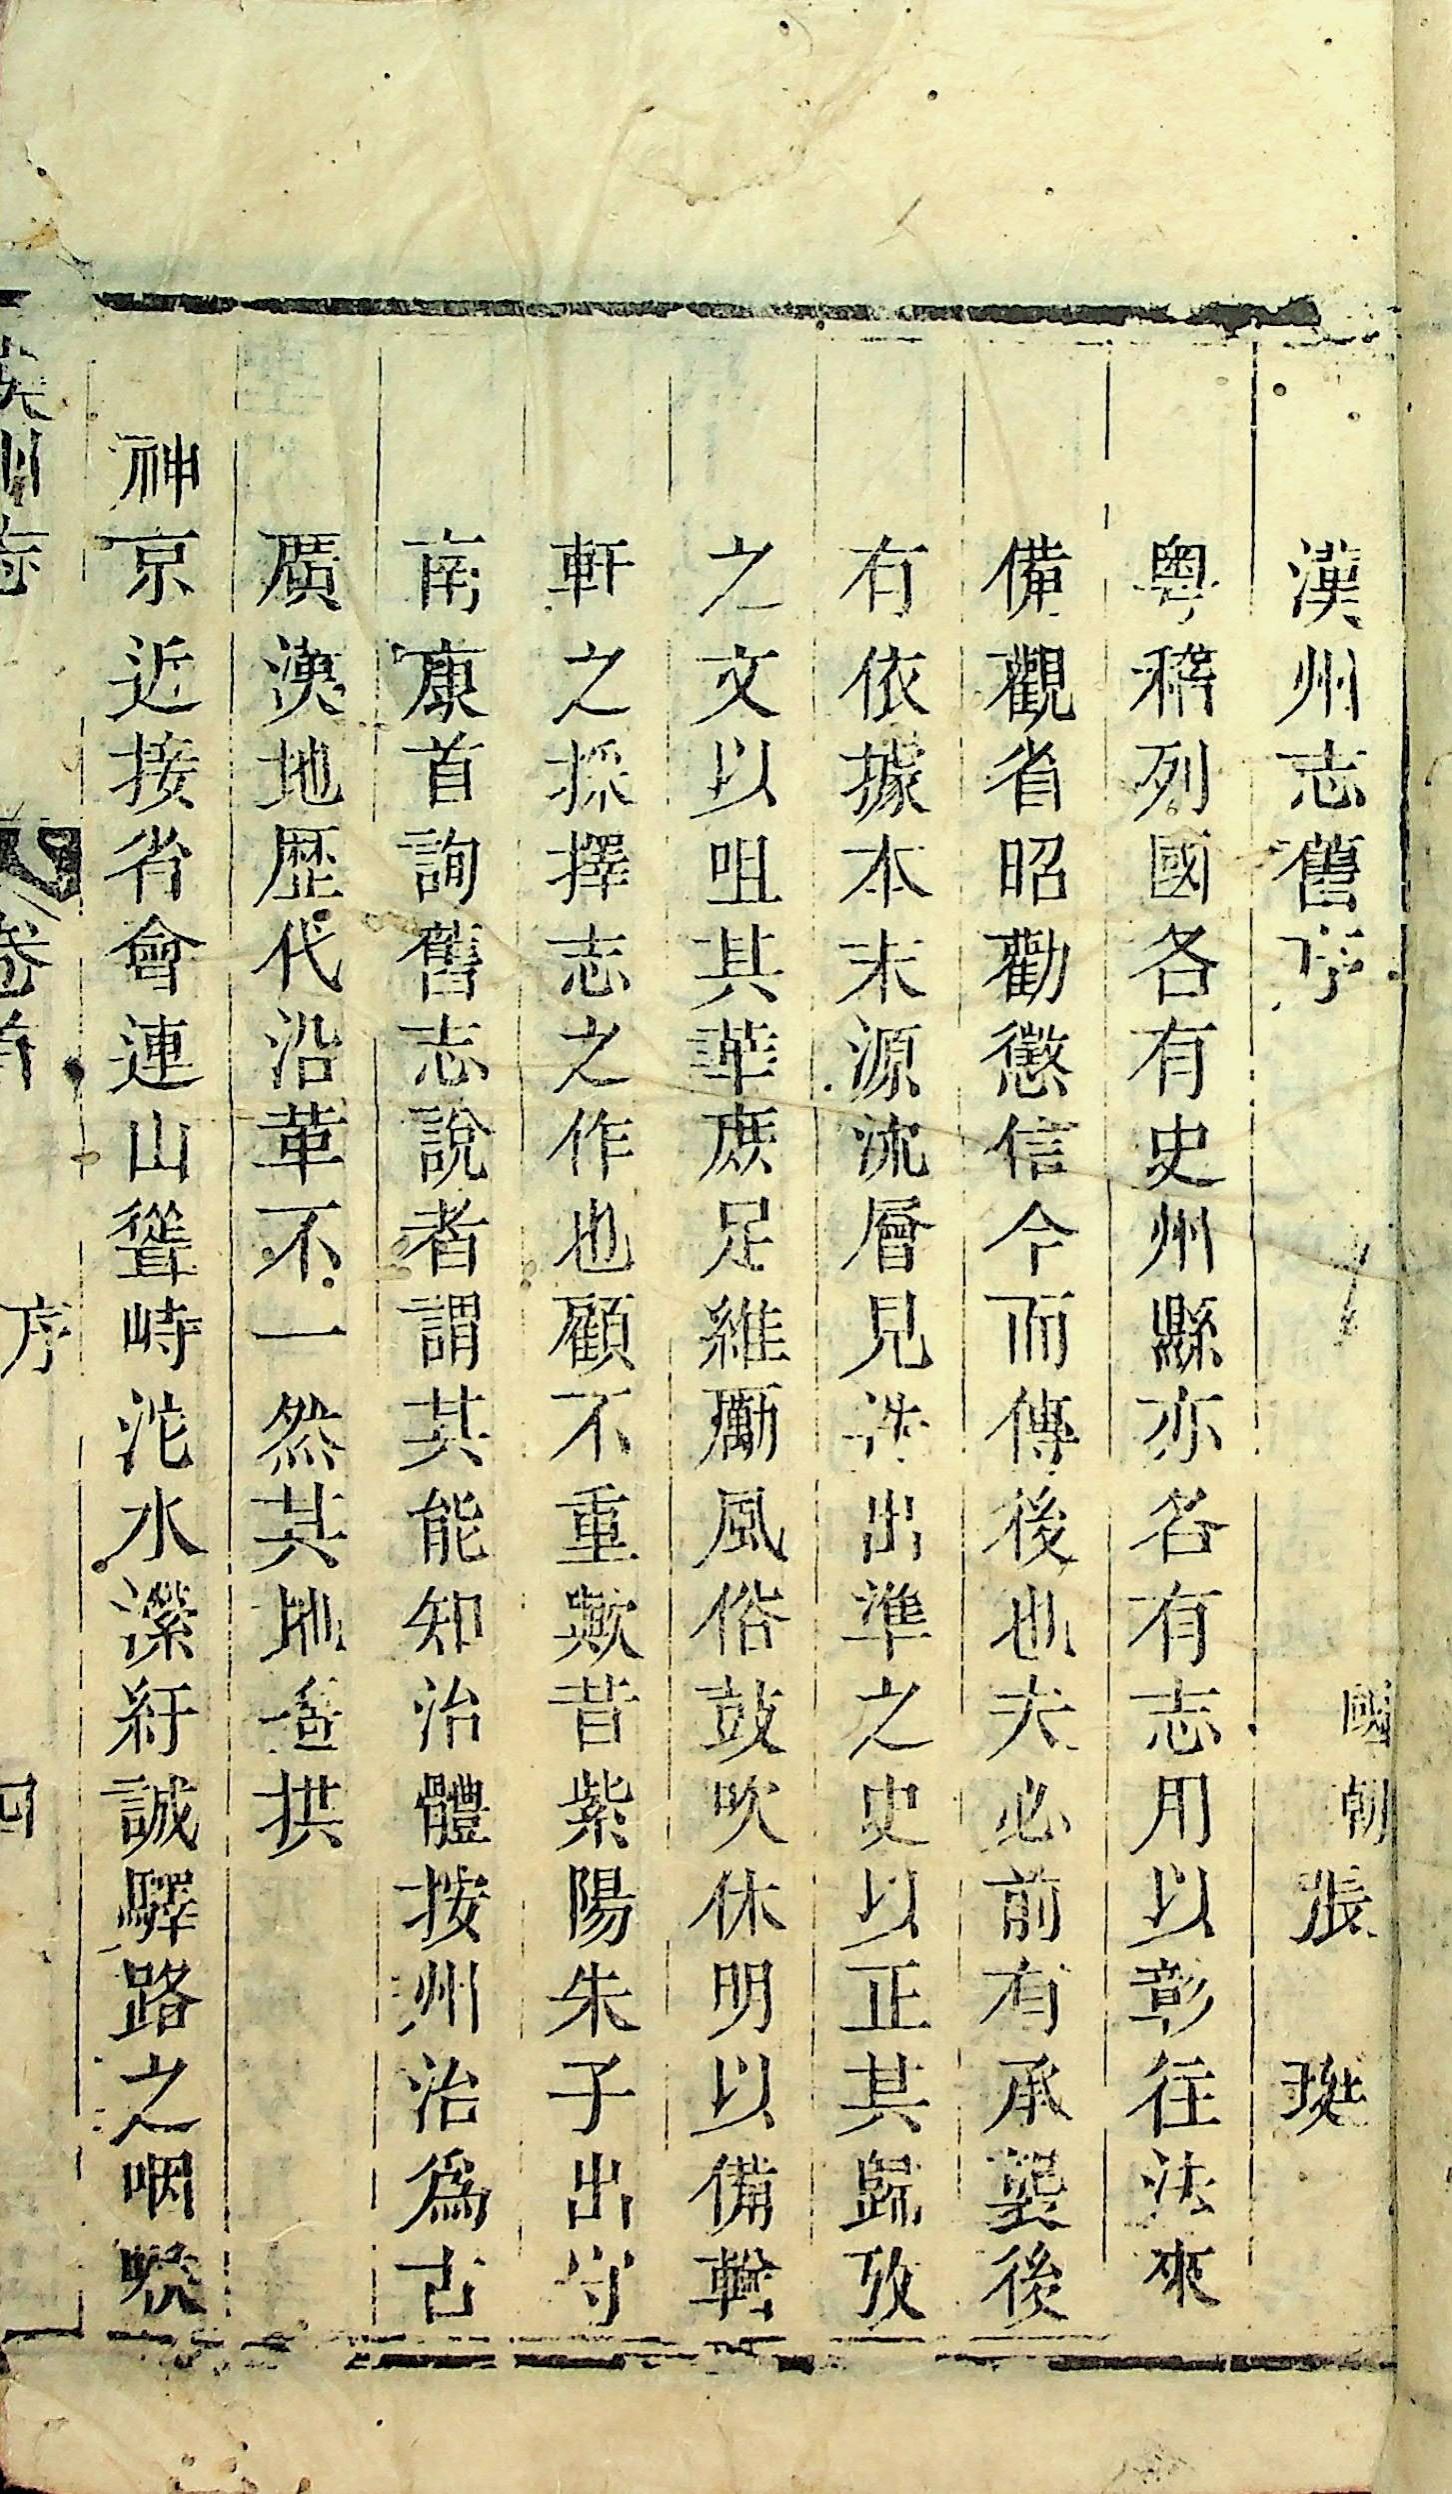 漢州志舊序
國朝張 珽
粤稽列國各有史州縣亦各有志用以彰往法來
備觀省昭勸懲信今而傳後也夫必前有承襲後
有依據本末源流層見迭出準之史以正其歸攷
之文以咀其華庶足維勵風俗鼓吹休明以備輶
軒之採擇志之作也顧不重歟昔紫陽朱子出守
南康首詢舊志說者謂其能知治體按州治爲古
廣漢地歴代沿革不一然其地遥拱
神京近接省會連山聳峙沱水瀠紆誠驛路之咽喉
漢州志 卷首 序 四